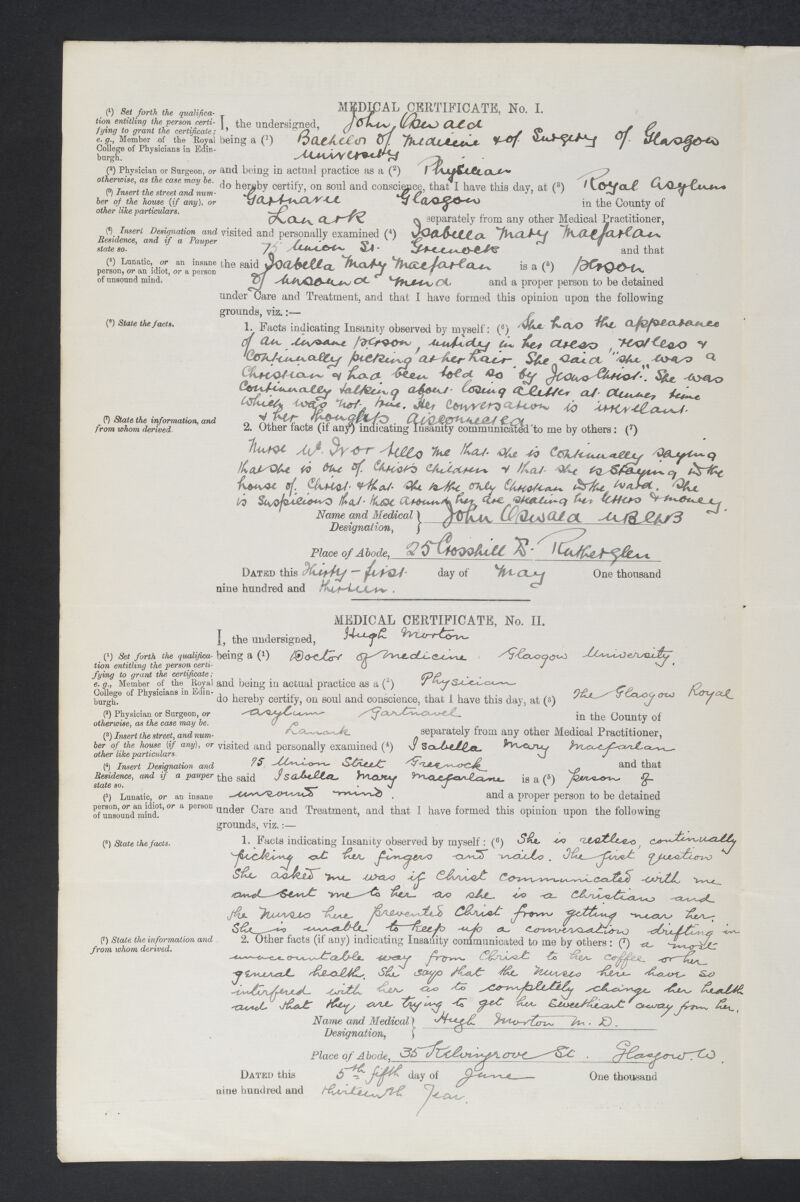 MEDICAL CERTIFICATE, No. I.
(1) Set forth the qualifica-
tion entitling the person certi-
fying to grant the certificate;
e.g., Member of the Royal
College of Physicians in Edin-
burgh.
(2) Physician or Surgeon, or
otherwise, as the case may be.
(3) Insert the street and num-
ber of the house (if any), or
other like particulars.
(4) Insert Designation and
Residence, and if a Pauper
state so.
(5) Lunatic, or an insane
person, or an idiot, or a person
of unsound mind.
(6) State the facts.
(7) State the information, and
from whom derived.
I, the undersigned, John Oswald
being a (1) Bachelor of Medicine & of Surgery of Glasgow
University
and being in actual practice as a (2) Physician
do hereby certify, on soul and conscience, that I have this day, at (3) Royal Asylum
Gartnavel Glasgow in the County of
Lanark separately from any other Medical Practitioner,
visited and personally examined (4) Isabella Mary Macfarlan
75 Union St. Greenock and that
the said Isabella Mary Macfarlan is a (5) person
of unsound mind and a proper person to be detained
under Care and Treatment, and that I have formed this opinion upon the following
grounds, viz.:—
1. Facts indicating Insanity observed by myself: (6) She has the appearance
of an insane person, untidy in her dress, restless &
Continually picking at her hair. She said "she was a
Christian & had been told so by Jesus Christ". She was
Continually talking about losing a letter at dinner time
which was not true. Her conversation is irrevelant
& her thoughts disconnected
2. Other facts (if any) indicating Insanity communicated to me by others: (7)
Nurse Mc Ivor tells me that she is continually saying
that she is one of Christs children & that she is staying in the
house of Christ & that she is the only Christian in the ward. She
is suspicious that those around her are stealing her letters & money.
Name and Medical Designation, John Oswald MB ChB
Place of Abode, 25 Crosshill St. Rutherglen
DATED this Thirty-first day of May One thousand
nine hundred and thirteen.
MEDICAL CERTIFICATE, No. II.
(1) Set forth the qualifica-
tion entitling the person certi-
fying to grant the certificate;
e.g., Member of the Royal
College of Physicians in Edin-
burgh.
(2) Physician or Surgeon, or
otherwise, as the case may be.
(3) Insert the street, and num-
ber of the house (if any), or
other like particulars.
(4) Insert Designation and
Residence, and if a pauper
state so.
(5) Lunatic, or an insane
person, or an idiot, or a person
of unsound mind.
(6) State the facts.
(7) State the information and
from whom derived.
I, the undersigned, Hugh Morton
being a (1) Doctor of Medicine Glasgow University.
and being in actual practice as a (2) Physician
do hereby certify, on soul and conscience, that I have this day, at (3) The Glasgow Royal
Asylum Gartnavel in the County of
Lanark separately from any other Medical Practitioner,
visited and personally examined (4) Isabella Mary Macfarlan
75 Union Street Greenock and that
the said Isabella Mary Macfarlane is a (5) person of
unsound mind. and a proper person to be detained
under Care and Treatment, and that I have formed this opinion upon the following
grounds, viz.:—
1. Facts indicating Insanity observed by myself: (6) She is restless, continually
picking at her fingers and nails. The first question
She asked me was if Christ communicated with me
and sent me to her as she is a Christian and
the Nurses here prevented Christ from getting near her.
She is unable to keep up a conversation drifting in
2. Other facts (if any) indicating Insanity communicated to me by others: (7) a most
unaccountable way from Christ to her coffee or her
general health. She says that the Nurses here have so
interfered with her as to completely change her health
and that they are trying to get her sweetheart away from her.
Name and Medical Designation, Hugh Morton M.D.
Place of Abode, 35 Kelvingrove St. Glasgow. W.
DATED this 5th fifth day of June One thousand
nine hundred and thirteenth Year.